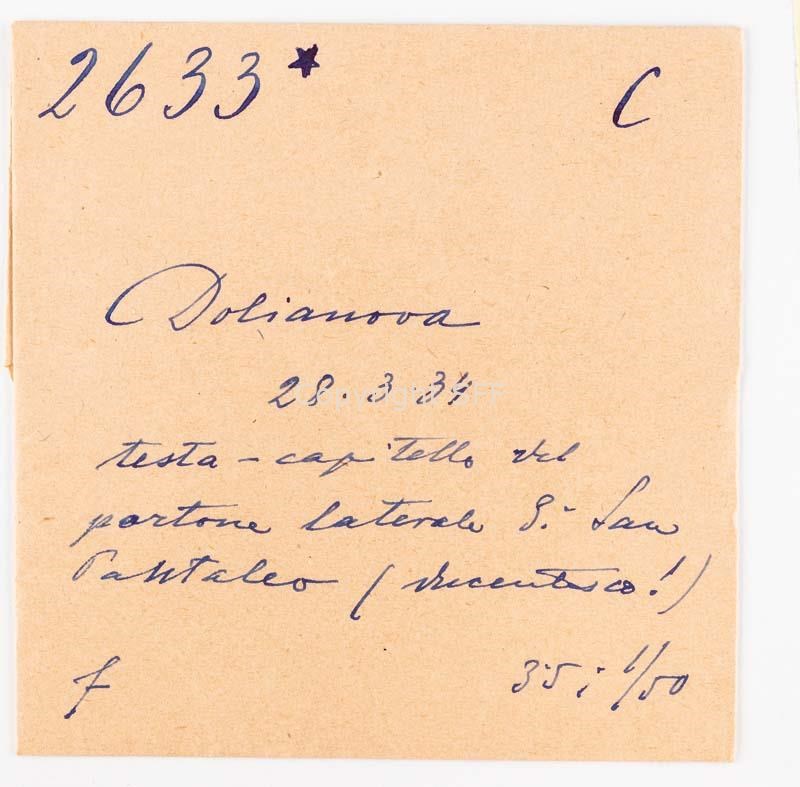 2633* C
Dolianova
28.3.34
testa - capitello del
portone laterale di San
Pantaleo (ducentesco!)
f 3.5; 1/50